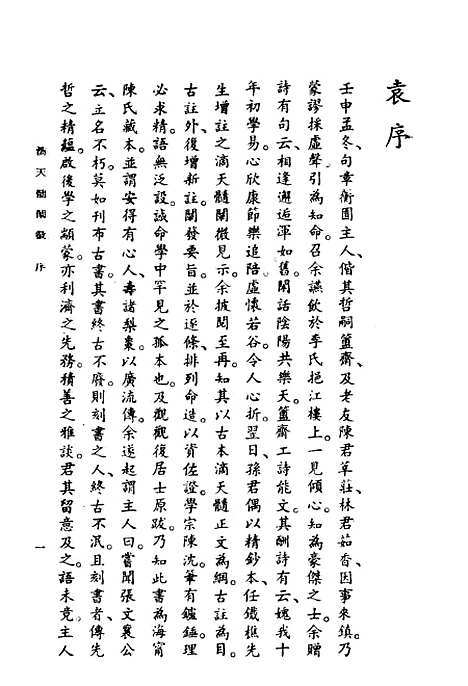 袁序
壬申孟冬、句章衡圃主人、偕其哲嗣簠齋、及老友陳君草莊、林君茹香、因事來鎮。乃
蒙謬採虛聲、引為知命。召余讌飲於季氏挹江樓上。一見傾心。知為豪傑之士。余贈
詩有句云、相逢邂逅渾如舊。閑話陰陽共樂天。簠齋工詩能文。其酬詩有云、媿我十
年初學易。心欣康節樂追陪。虛懷若谷。令人心折。翌日、孫君偶以精鈔本、任鐵樵先
生增註之滴天髓闡微見示。余披閱至再。知其以古本滴天髓正文為綱。古註為目。
古註外、復增新註。闡發要旨。並於逐條、排列命造。以資佐證。學宗陳沈。筆有鑪錘。理
必求精。語無泛設。誠命學中罕見之孤本也。及觀觀復居士原跋。乃知此書為海甯
陳氏藏本。並謂安得有心人、壽諸梨棗。以廣流傳。余遂起謂主人曰。嘗聞張文襄公
云、立名不朽。莫如刊布古書。其書終古不廢。則刻書之人、終古不泯。且刻書者、傳先
哲之精蘊。啟後學之顓蒙。亦利濟之先務。積善之雅談。君其留意及之。語未竟、主人
滴天髓闡微 序
一